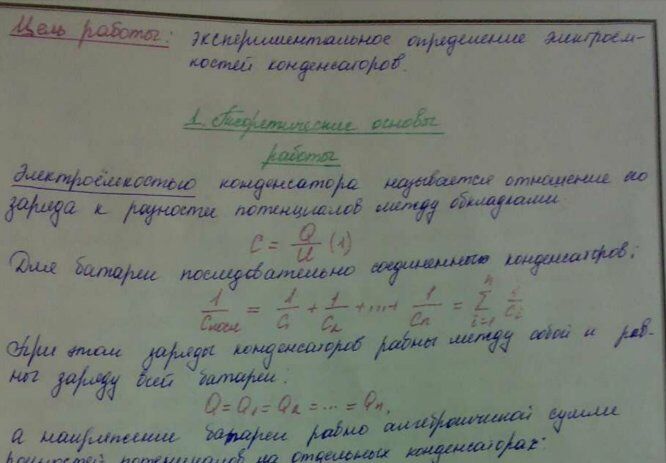 Цель работы: экспериментальное определение электроём-
костей конденсаторов.
1. Теоретические основы
работы
Электроёмкостью конденсатора называется отношение его
заряда к разности потенциалов между обкладками:
C = Q/U (1)
Для батареи последовательно соединенных конденсаторов:
1/Cпосл = 1/C₁ + 1/C₂ + ... + 1/Cn = ∑ⁿᵢ₌₁ 1/Cᵢ
При этом заряды конденсаторов равны между собой и рав-
ны заряду всей батареи:
Q = Q₁ = Q₂ = ... = Qn,
а напряжение батареи равно алгебраической сумме
разностей потенциалов на отдельных конденсаторах: